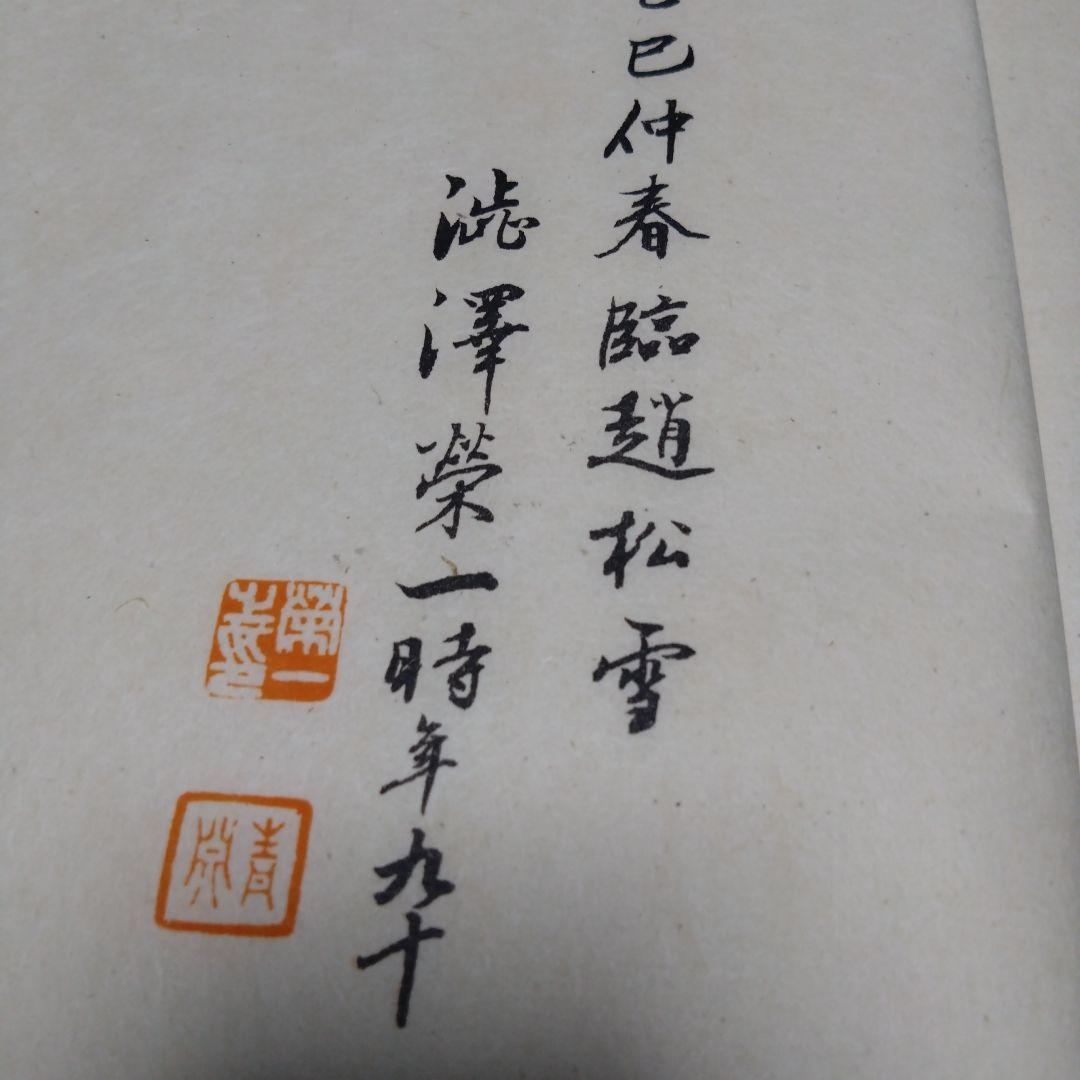 巳仲春臨趙松雪
澁澤榮一時年九十
榮一
青